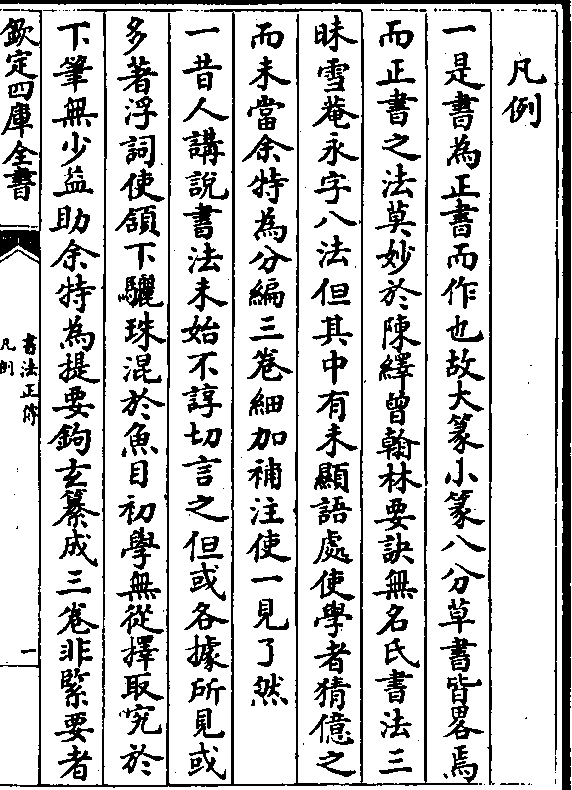 凡例
一是書為正書而作也故大篆小篆八分草書皆畧焉
而正書之法莫妙於陳繹曾翰林要訣無名氏書法三
昧雪菴永字八法但其中有未顯語處使學者猜億之
而未當余特為分編三卷細加補注使一見了然
一昔人講說書法未始不諄切言之但或各據所見或
多著浮詞使頷下驪珠混於魚目初學無從擇取究於
下筆無少益助余特為提要鉤玄纂成三卷非緊要者
欽定四庫全書
書法正傳
凡例
一